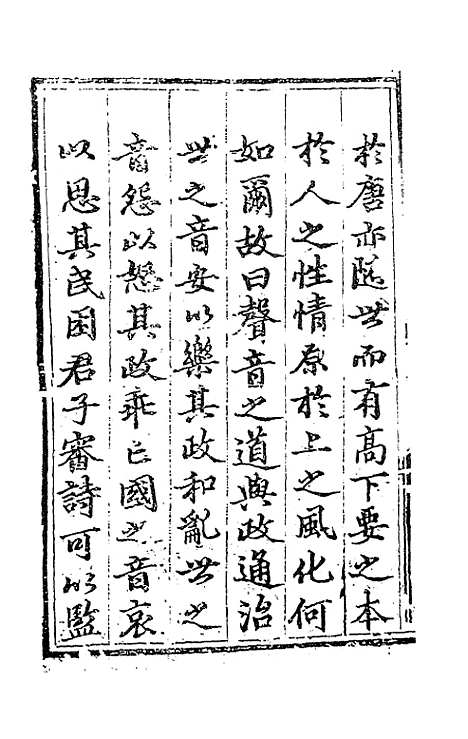 於唐亦隨世而有高下要之本
於人之性情原於上之風化何
如爾故曰聲音之道與政通治
世之音安以樂其政和亂世之
音怨以怒其政乖亡國之音哀
以思其民困君子審詩可以監